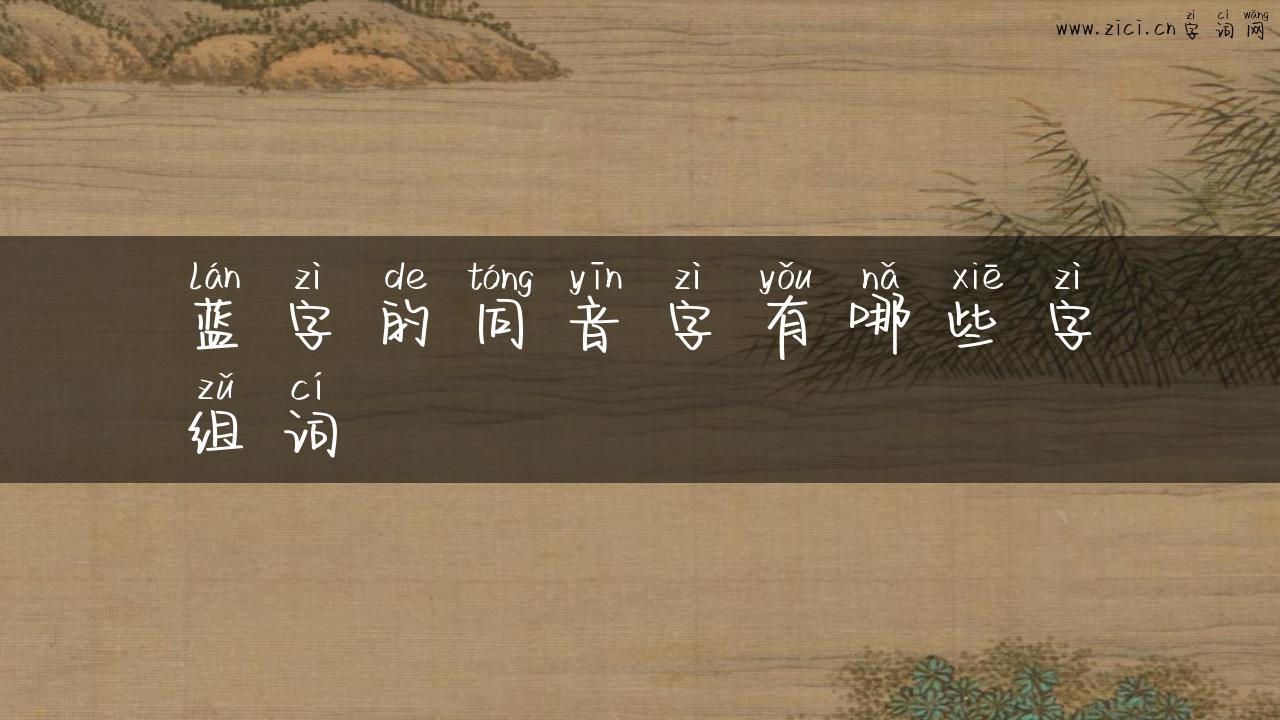 zì cí wǎng
www.zici.cn 字词网
lán zì de tóng yīn zì yǒu nǎ xiē zì
蓝字的同音字有哪些字
zǔ cí
组词